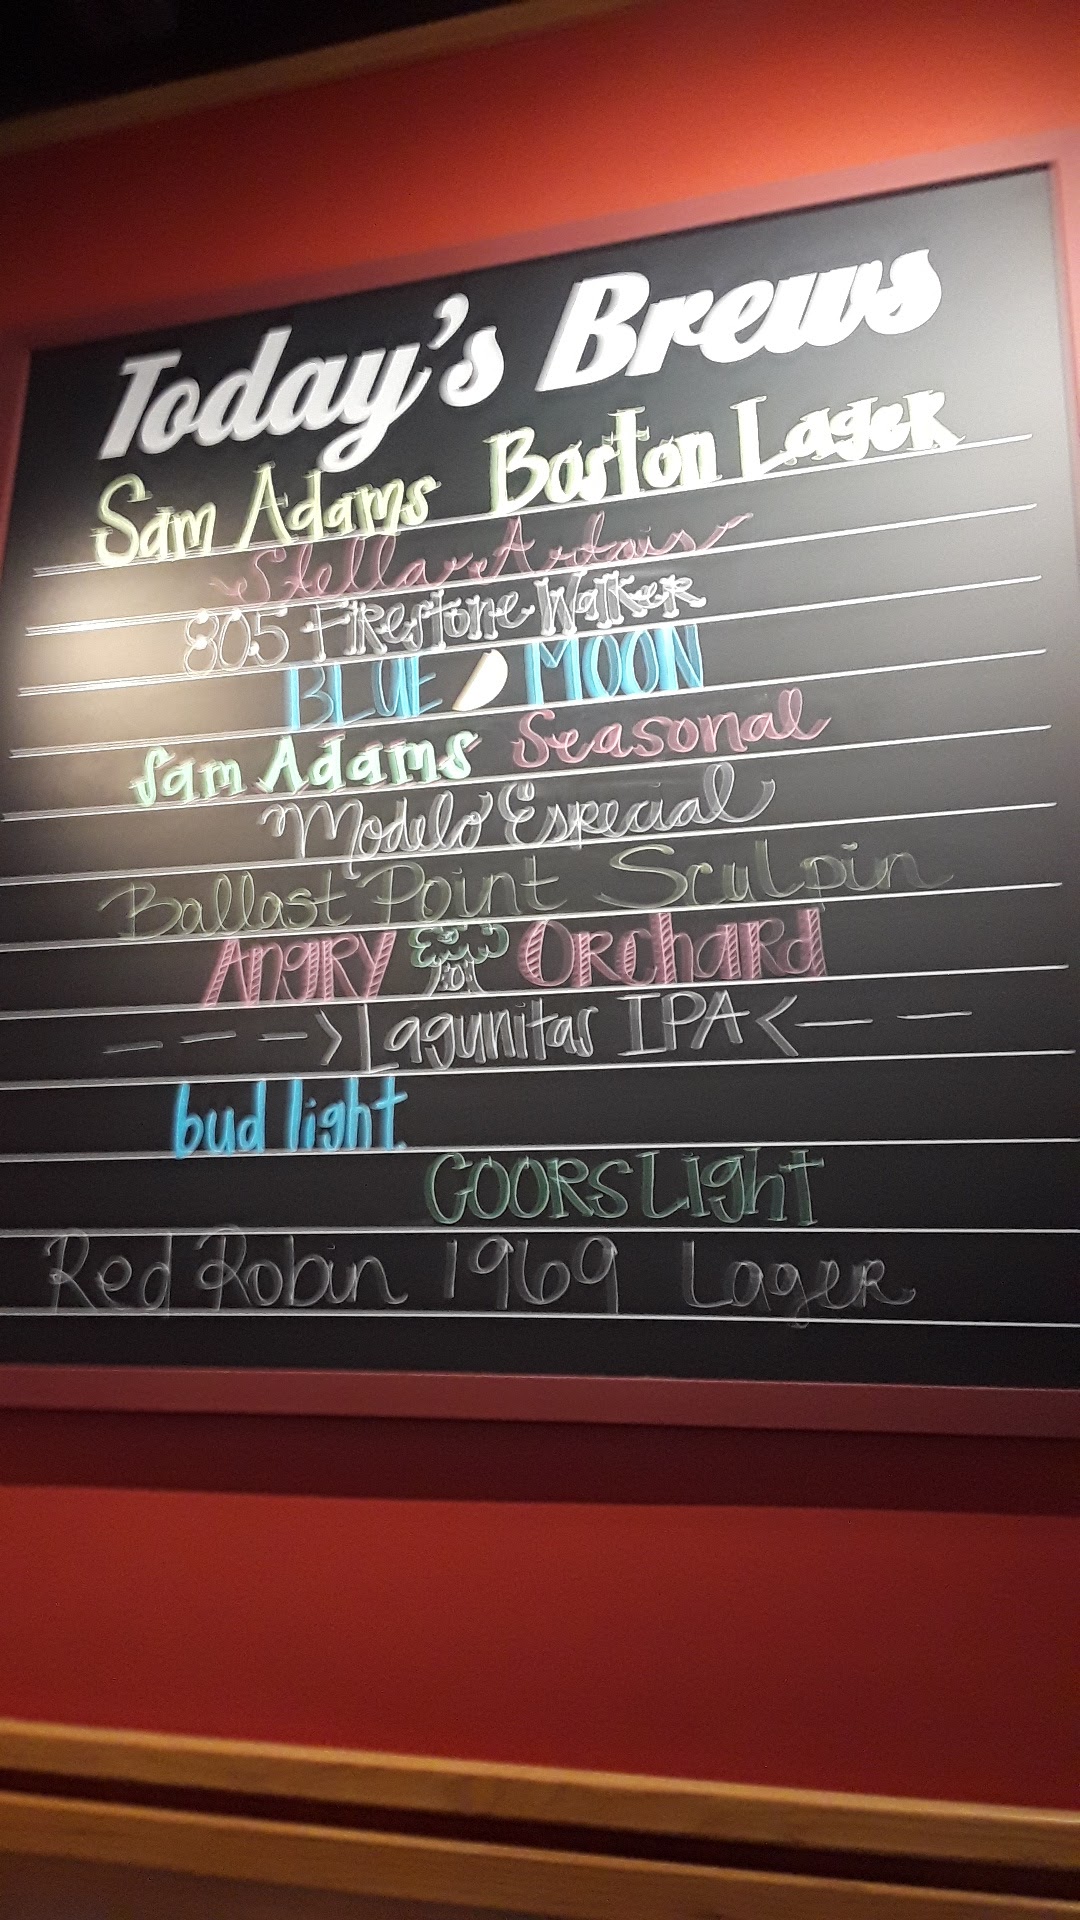 Today's Brews
Sam Adams Boston Lager
Stella Artois
805 Firestone Walker
BLUE MOON
Sam Adams Seasonal
Modelo Especial
Ballast Point Sculpin
Angry Orchard
---->Lagunitas IPA<---
bud light.
COORS Light
Red Robin 1969 Lager